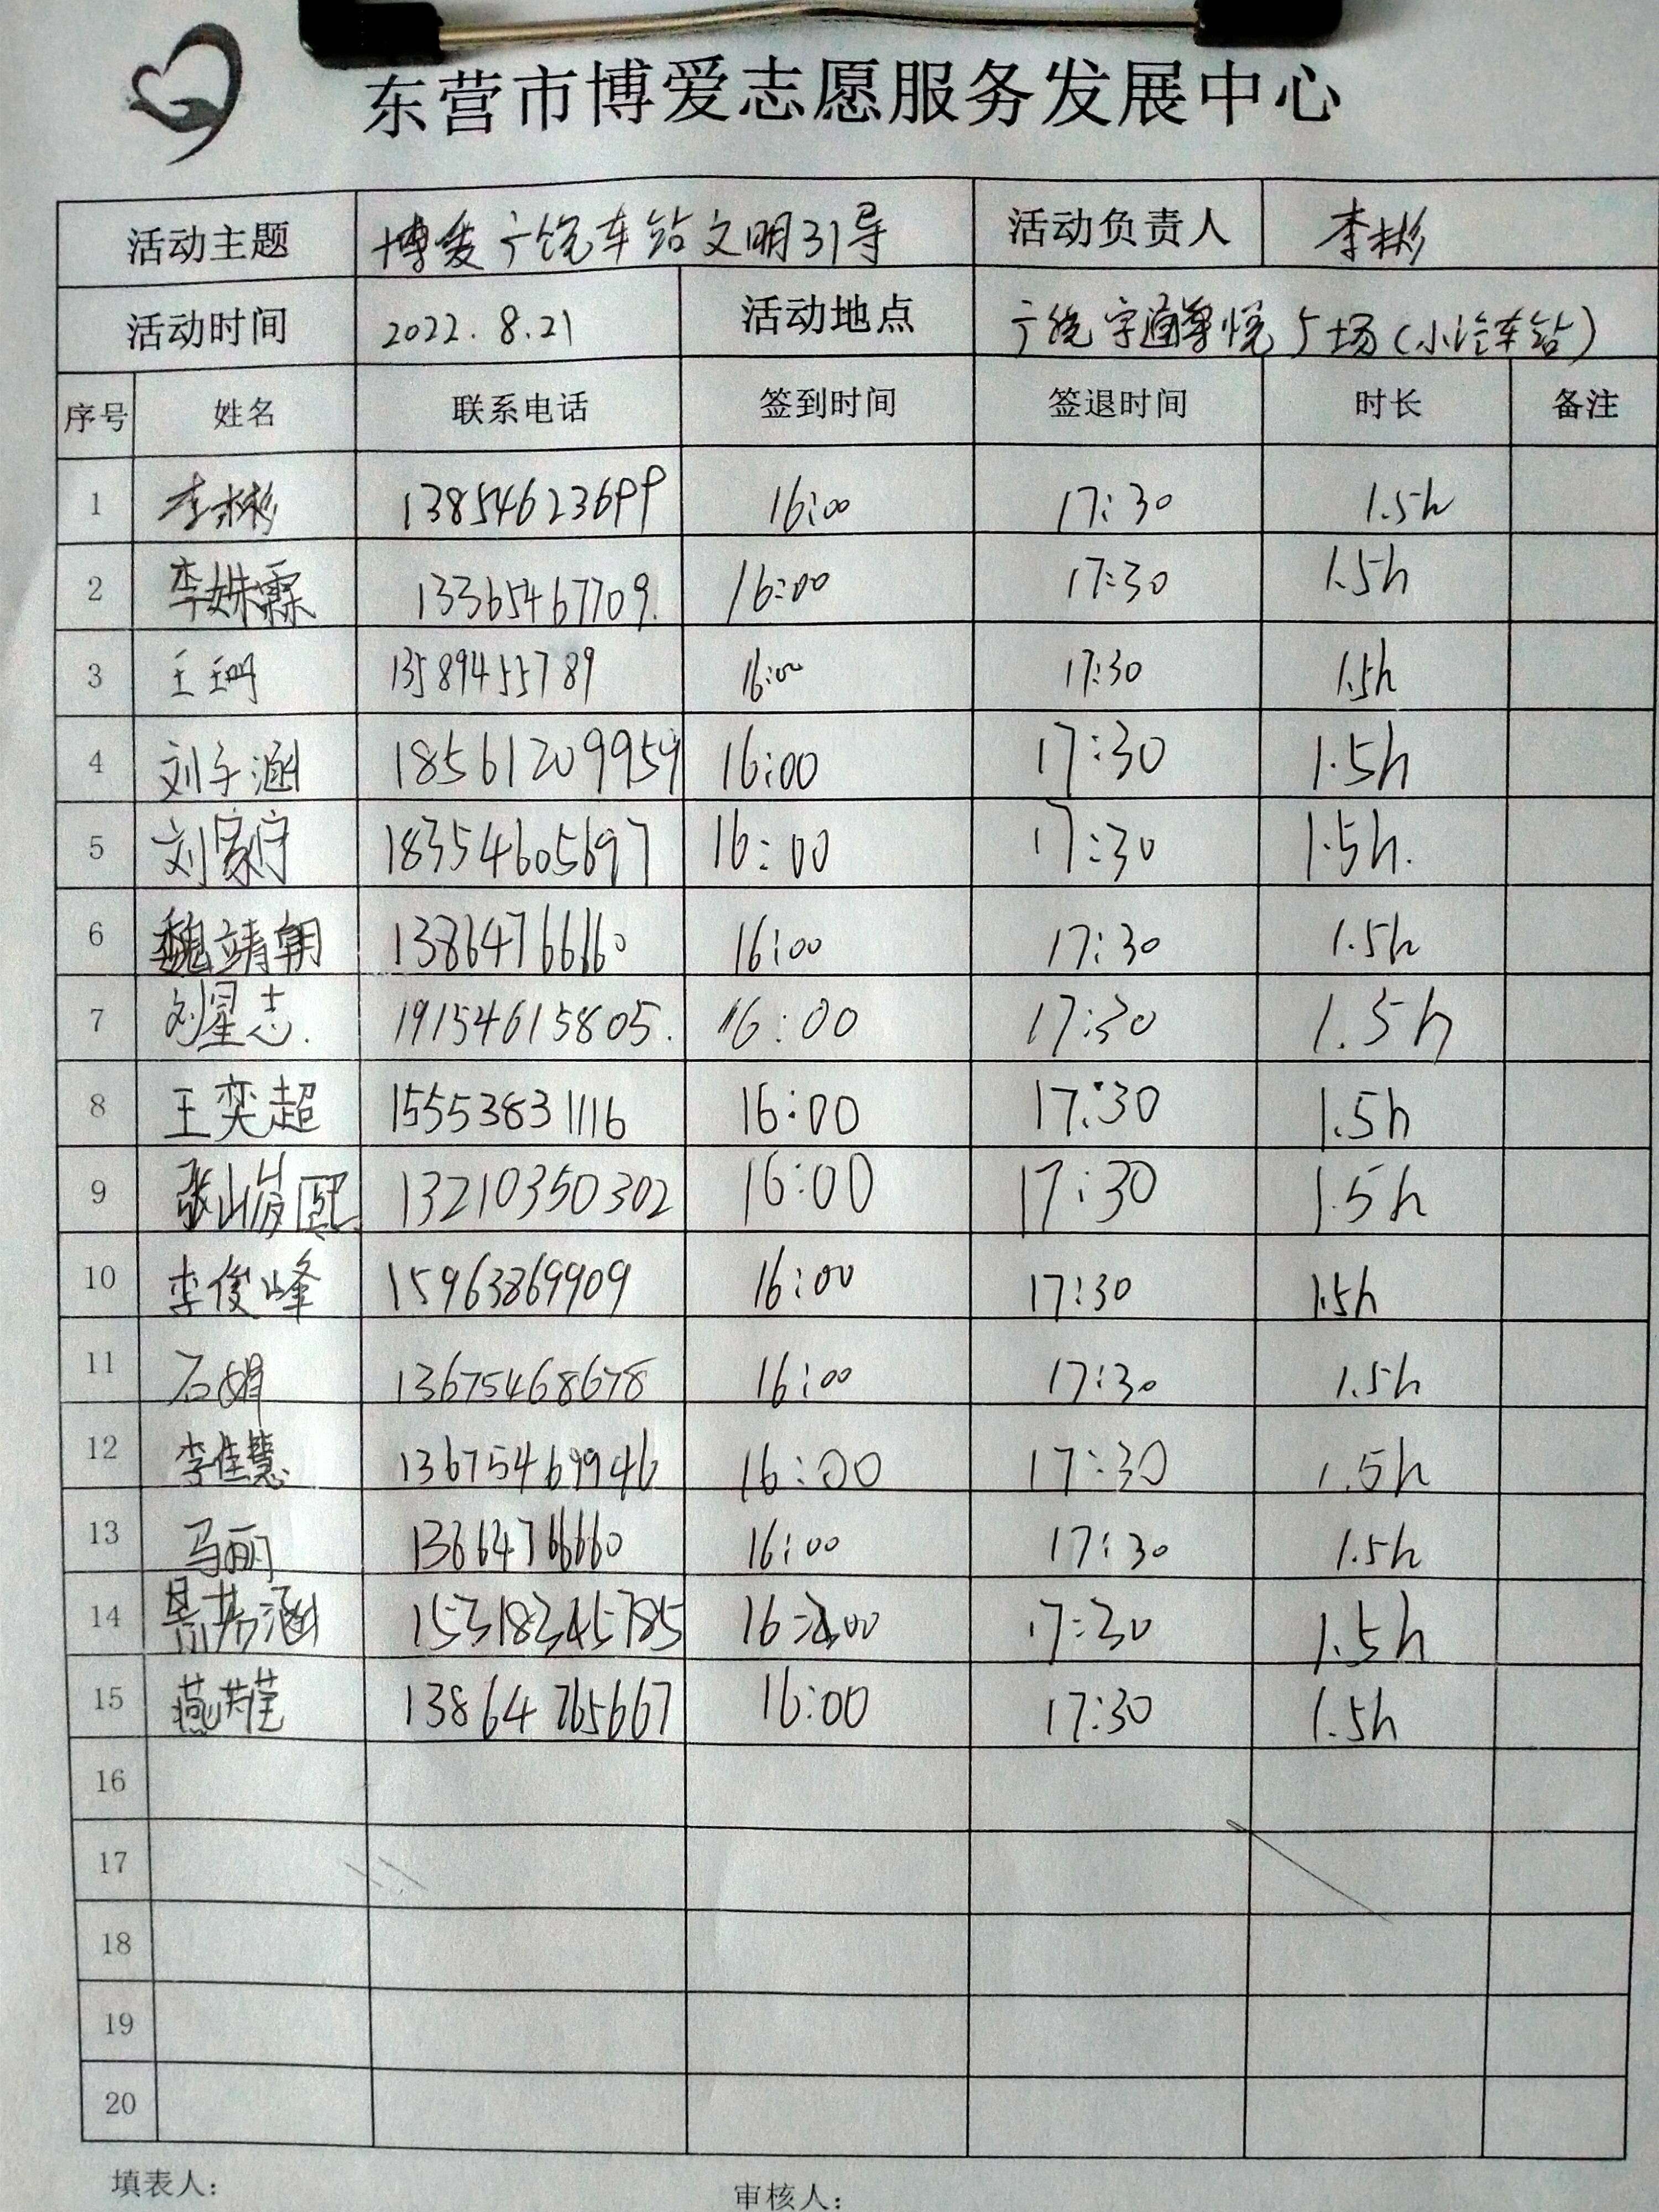 东营市博爱志愿服务发展中心
活动主题 博爱广饶车站文明引导 活动负责人 李彬
活动时间 2022.8.21 活动地点 广饶宇通尊悦广场(小汽车站)
序号 姓名 联系电话 签到时间 签退时间 时长 备注
1 李彬 13854623699 16:00 17:30 1.5h
2 李姝霖 13365467709. 16:00 17:30 1.5h
3 王珊 13589455789 16:00 17:30 1.5h
4 刘子涵 18561209959 16:00 17:30 1.5h
5 刘家宁 18354605697 16:00 17:30 1.5h.
6 魏靖朝 13864766660 16:00 17:30 1.5h
7 刘星志. 19154615805. 16:00 17:30 1.5h
8 王奕超 15553831116 16:00 17:30 1.5h
9 13210350302 16:00 17:30 1.5h
10 李俊峰 15963869909 16:00 17:30 1.5h
11 石娟 13675468678 16:00 17:30 1.5h
12 李佳慧 13675469946 16:00 17:30 1.5h
13 马丽 16:00 17:30 1.5h
14 15318345785 16:00 17:30 1.5h
15 13864765667 16:00 17:30 1.5h
16
17
18
19
20
填表人: 审核人: